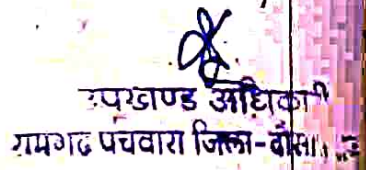 उपखण्ड अधिकारी
रामगढ पचवारा जिला-दौसा